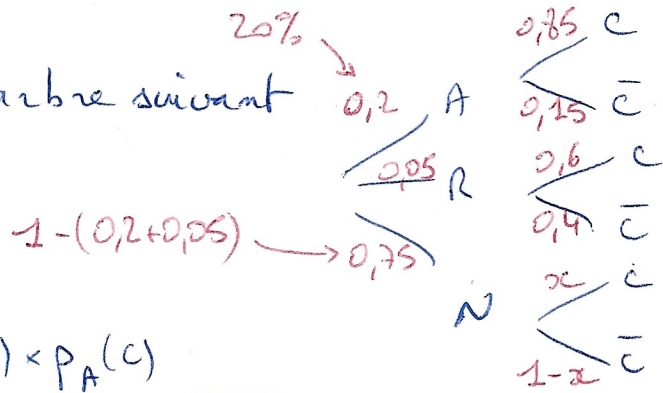 20% 0,85 C
arbre suivant 0,2 A 0,15 C̄
0,05 R 0,6 C
0,4 C̄
1-(0,2+0,05) → 0,75
N x C
1-x C̄
) × p_A(C)